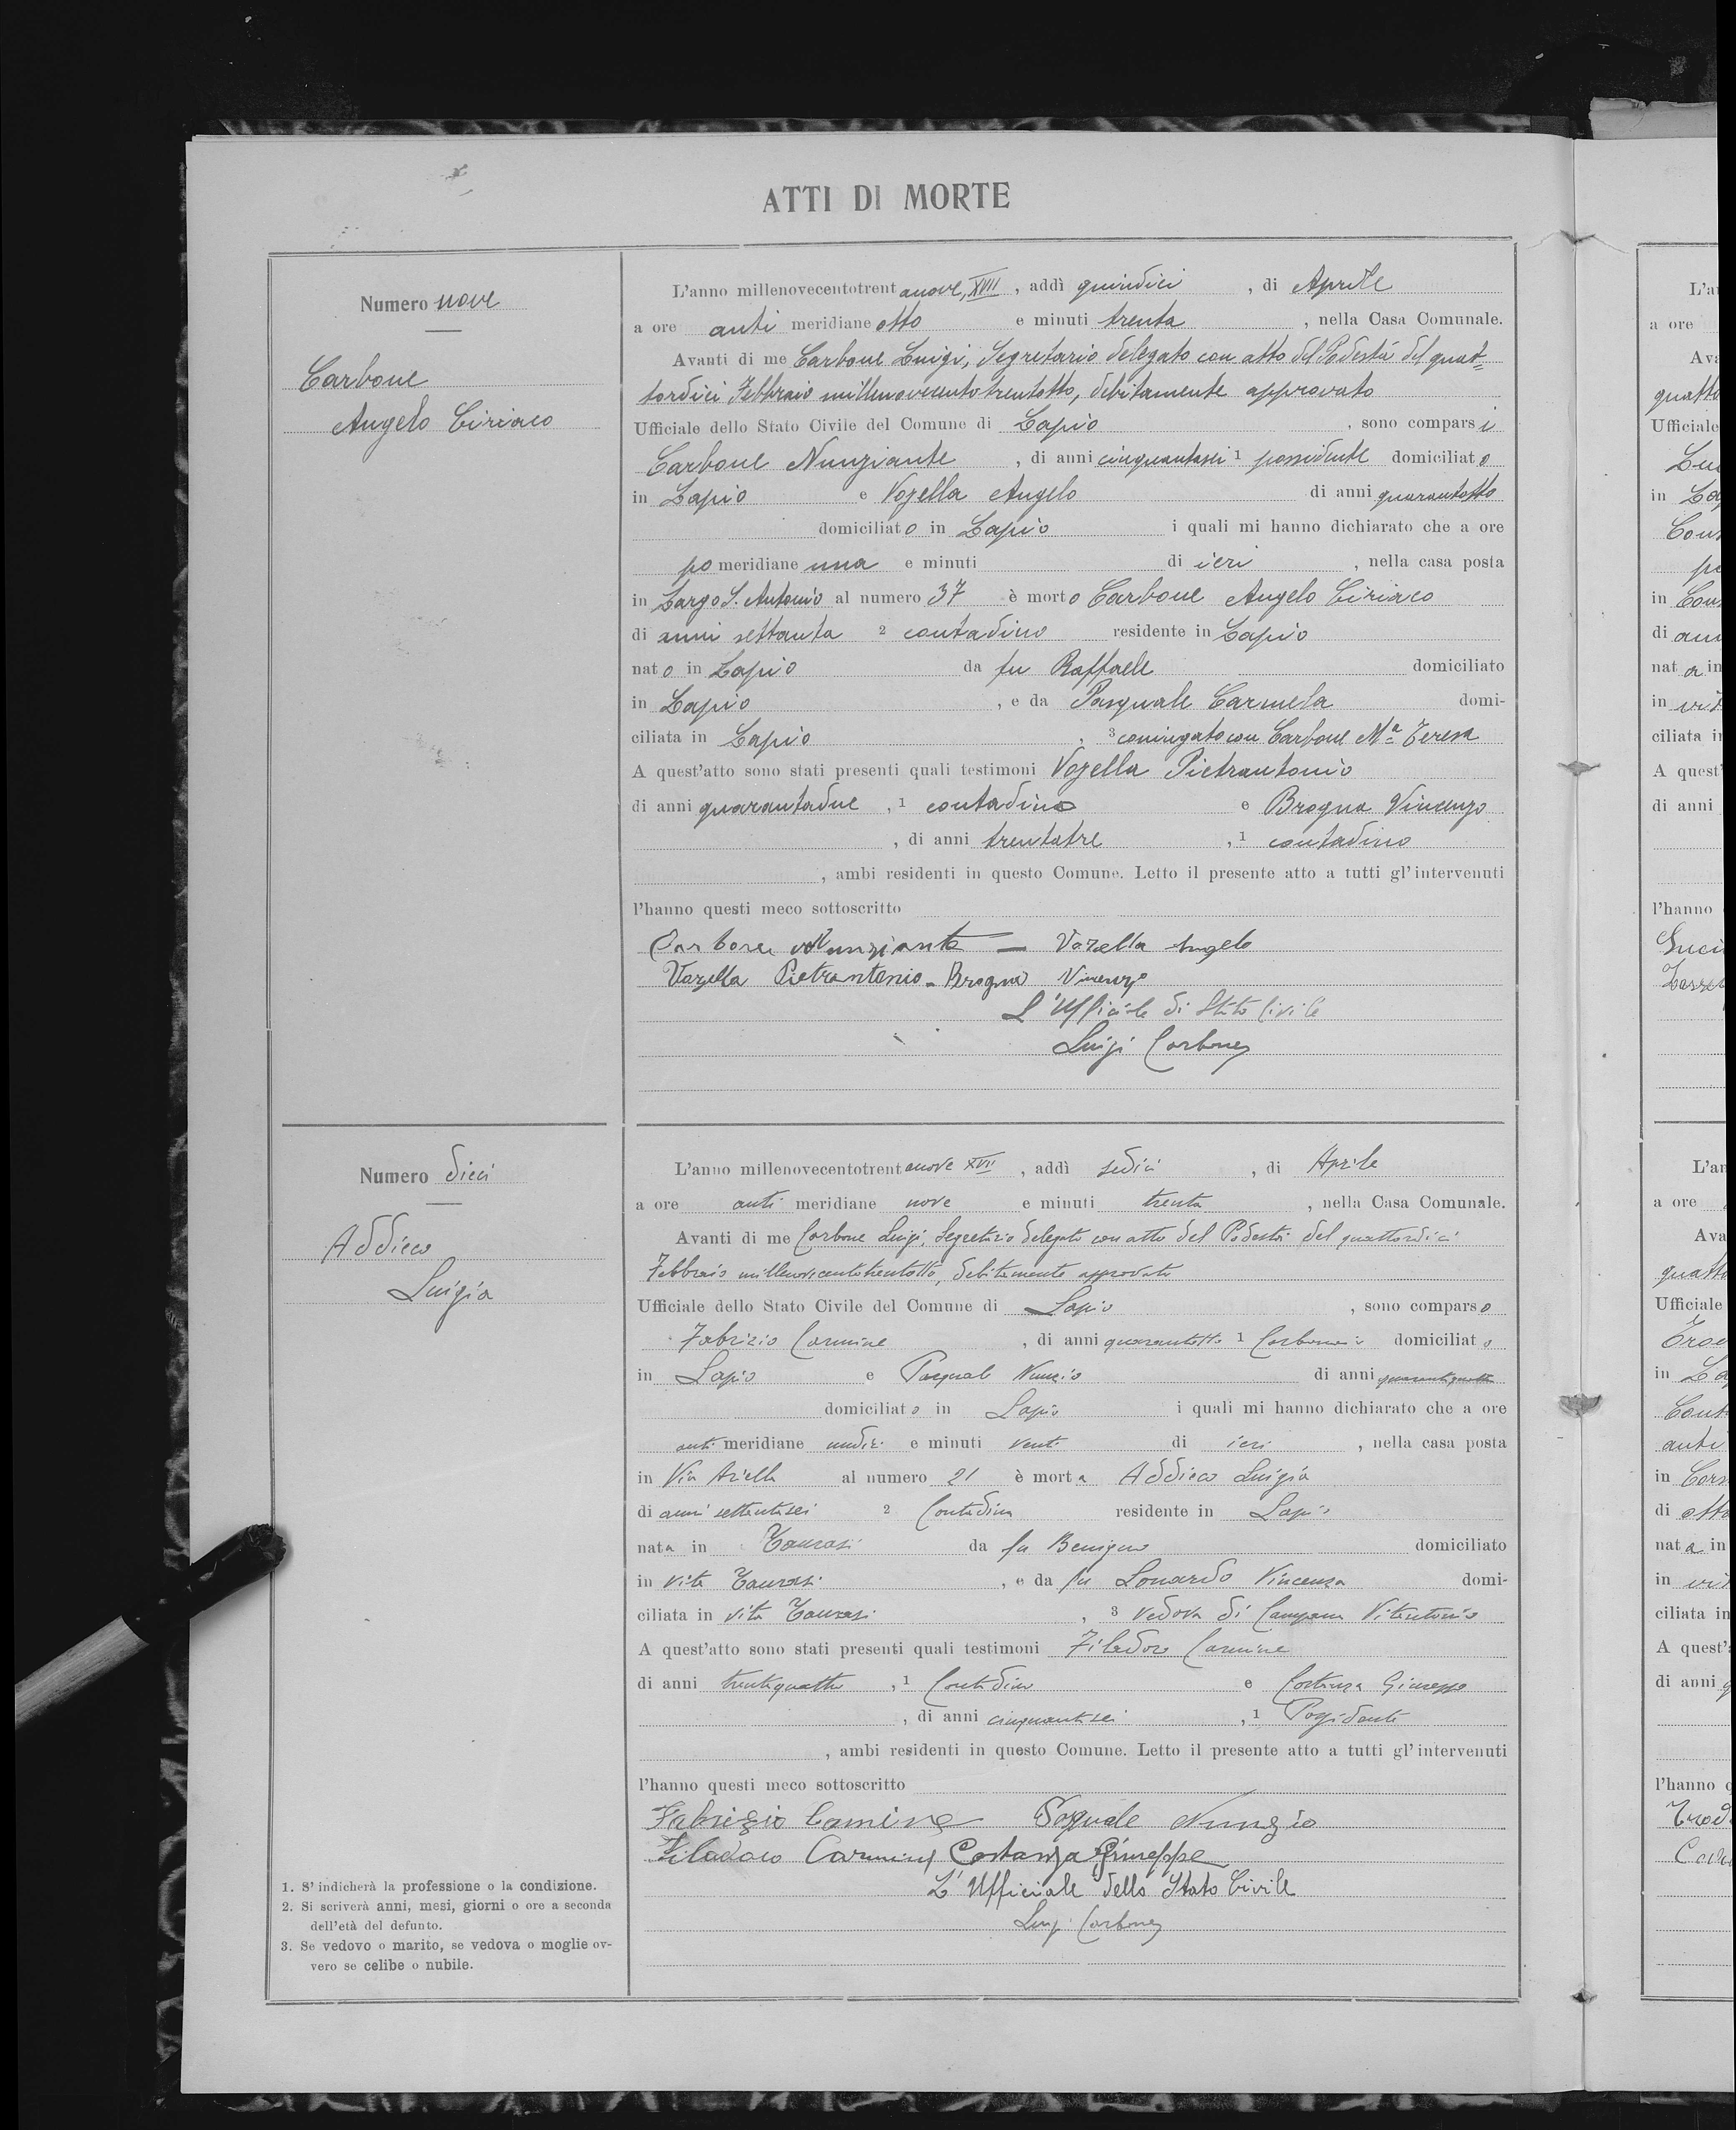 ATTI DI MORTE
Numero nove
Carbone
Angelo Ciriaco
L'anno millenovecentotrentanove, XVII, addì quindici, di Aprile
a ore anti meridiane otto e minuti trenta, nella Casa Comunale.
Avanti di me Carbone Luigi, Segretario delegato con atto del Podestà del quat=
tordici Febbraio millenovecentotrentotto, debitamente approvato
Ufficiale dello Stato Civile del Comune di Lapio, sono comparsi
Carbone Nunziante, di anni cinquantasei 1 possidente domiciliato
in Lapio e Vozella Angelo di anni quarantotto
domiciliato in Lapio i quali mi hanno dichiarato che a ore
po meridiane una e minuti di ieri, nella casa posta
in Largo S. Antonio al numero 37 è morto Carbone Angelo Ciriaco
di anni settanta 2 contadino residente in Lapio
nato in Lapio da fu Raffaele domiciliato
in Lapio, e da Pasquale Carmela domi-
ciliata in Lapio, 3 coniugato con Carbone Ma Teresa
A quest'atto sono stati presenti quali testimoni Vozella Pietrantonio
di anni quarantadue, 1 contadino e Brogna Vincenzo
, di anni trentatre, 1 contadino
, ambi residenti in questo Comune. Letto il presente atto a tutti gl'intervenuti
l'hanno questi meco sottoscritto
Carbone Nunziante — Vozella Angelo
Vozella Pietrantonio - Brogna Vincenzo
L'Ufficiale di Stato Civile
Luigi Carbone
Numero dieci
Addieco
Luigia
L'anno millenovecentotrentanove XVII, addì sedici, di Aprile
a ore anti meridiane nove e minuti trenta, nella Casa Comunale.
Avanti di me Carbone Luigi, Segretario delegato con atto del Podestà del quattordici
Febbraio millenovecentotrentotto, debitamente approvato
Ufficiale dello Stato Civile del Comune di Lapio, sono comparso
Fabrizio Carmine, di anni quarantotto 1 domiciliato
in Lapio e Pasquale Nunzio di anni quarantaquattro
domiciliato in Lapio i quali mi hanno dichiarato che a ore
anti meridiane undici e minuti venti di ieri, nella casa posta
in Via Ariella al numero 21 è morta Addieco Luigia
di anni settantasei 2 Contadina residente in Lapio
nata in Taurasi da fu Benigno domiciliato
in vita Taurasi, e da fu Lonardo Vincenza domi-
ciliata in vita Taurasi, 3 vedova di Campana Vitantonio
A quest'atto sono stati presenti quali testimoni Filadoro Carmine
di anni trentaquattro, 1 Contadino e Costanza Giuseppe
, di anni cinquantasei, 1 Possidente
, ambi residenti in questo Comune. Letto il presente atto a tutti gl'intervenuti
l'hanno questi meco sottoscritto
Fabrizio Camine Pasquale Nunzio
Filadoro Carmine Costanza Giuseppe
L'Ufficiale dello Stato Civile
Luigi Carbone
1. S'indicherà la professione o la condizione.
2. Si scriverà anni, mesi, giorni o ore a seconda
dell'età del defunto.
3. Se vedovo o marito, se vedova o moglie ov-
vero se celibe o nubile.